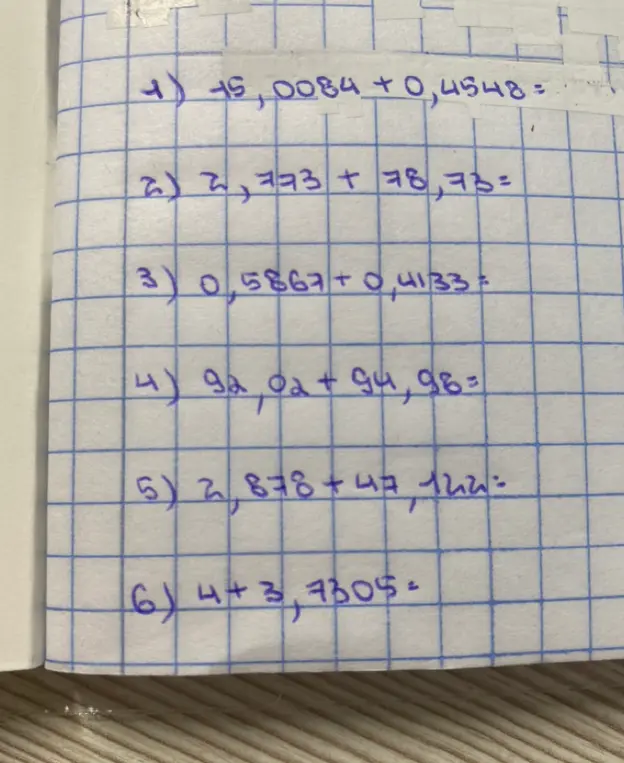 1) 15,0084 + 0,4548=
2) 2,773 + 78,73=
3) 0,5867 + 0,4133=
4) 92,02 + 94,98=
5) 2,878 + 47,122=
6) 4 + 3,7305=